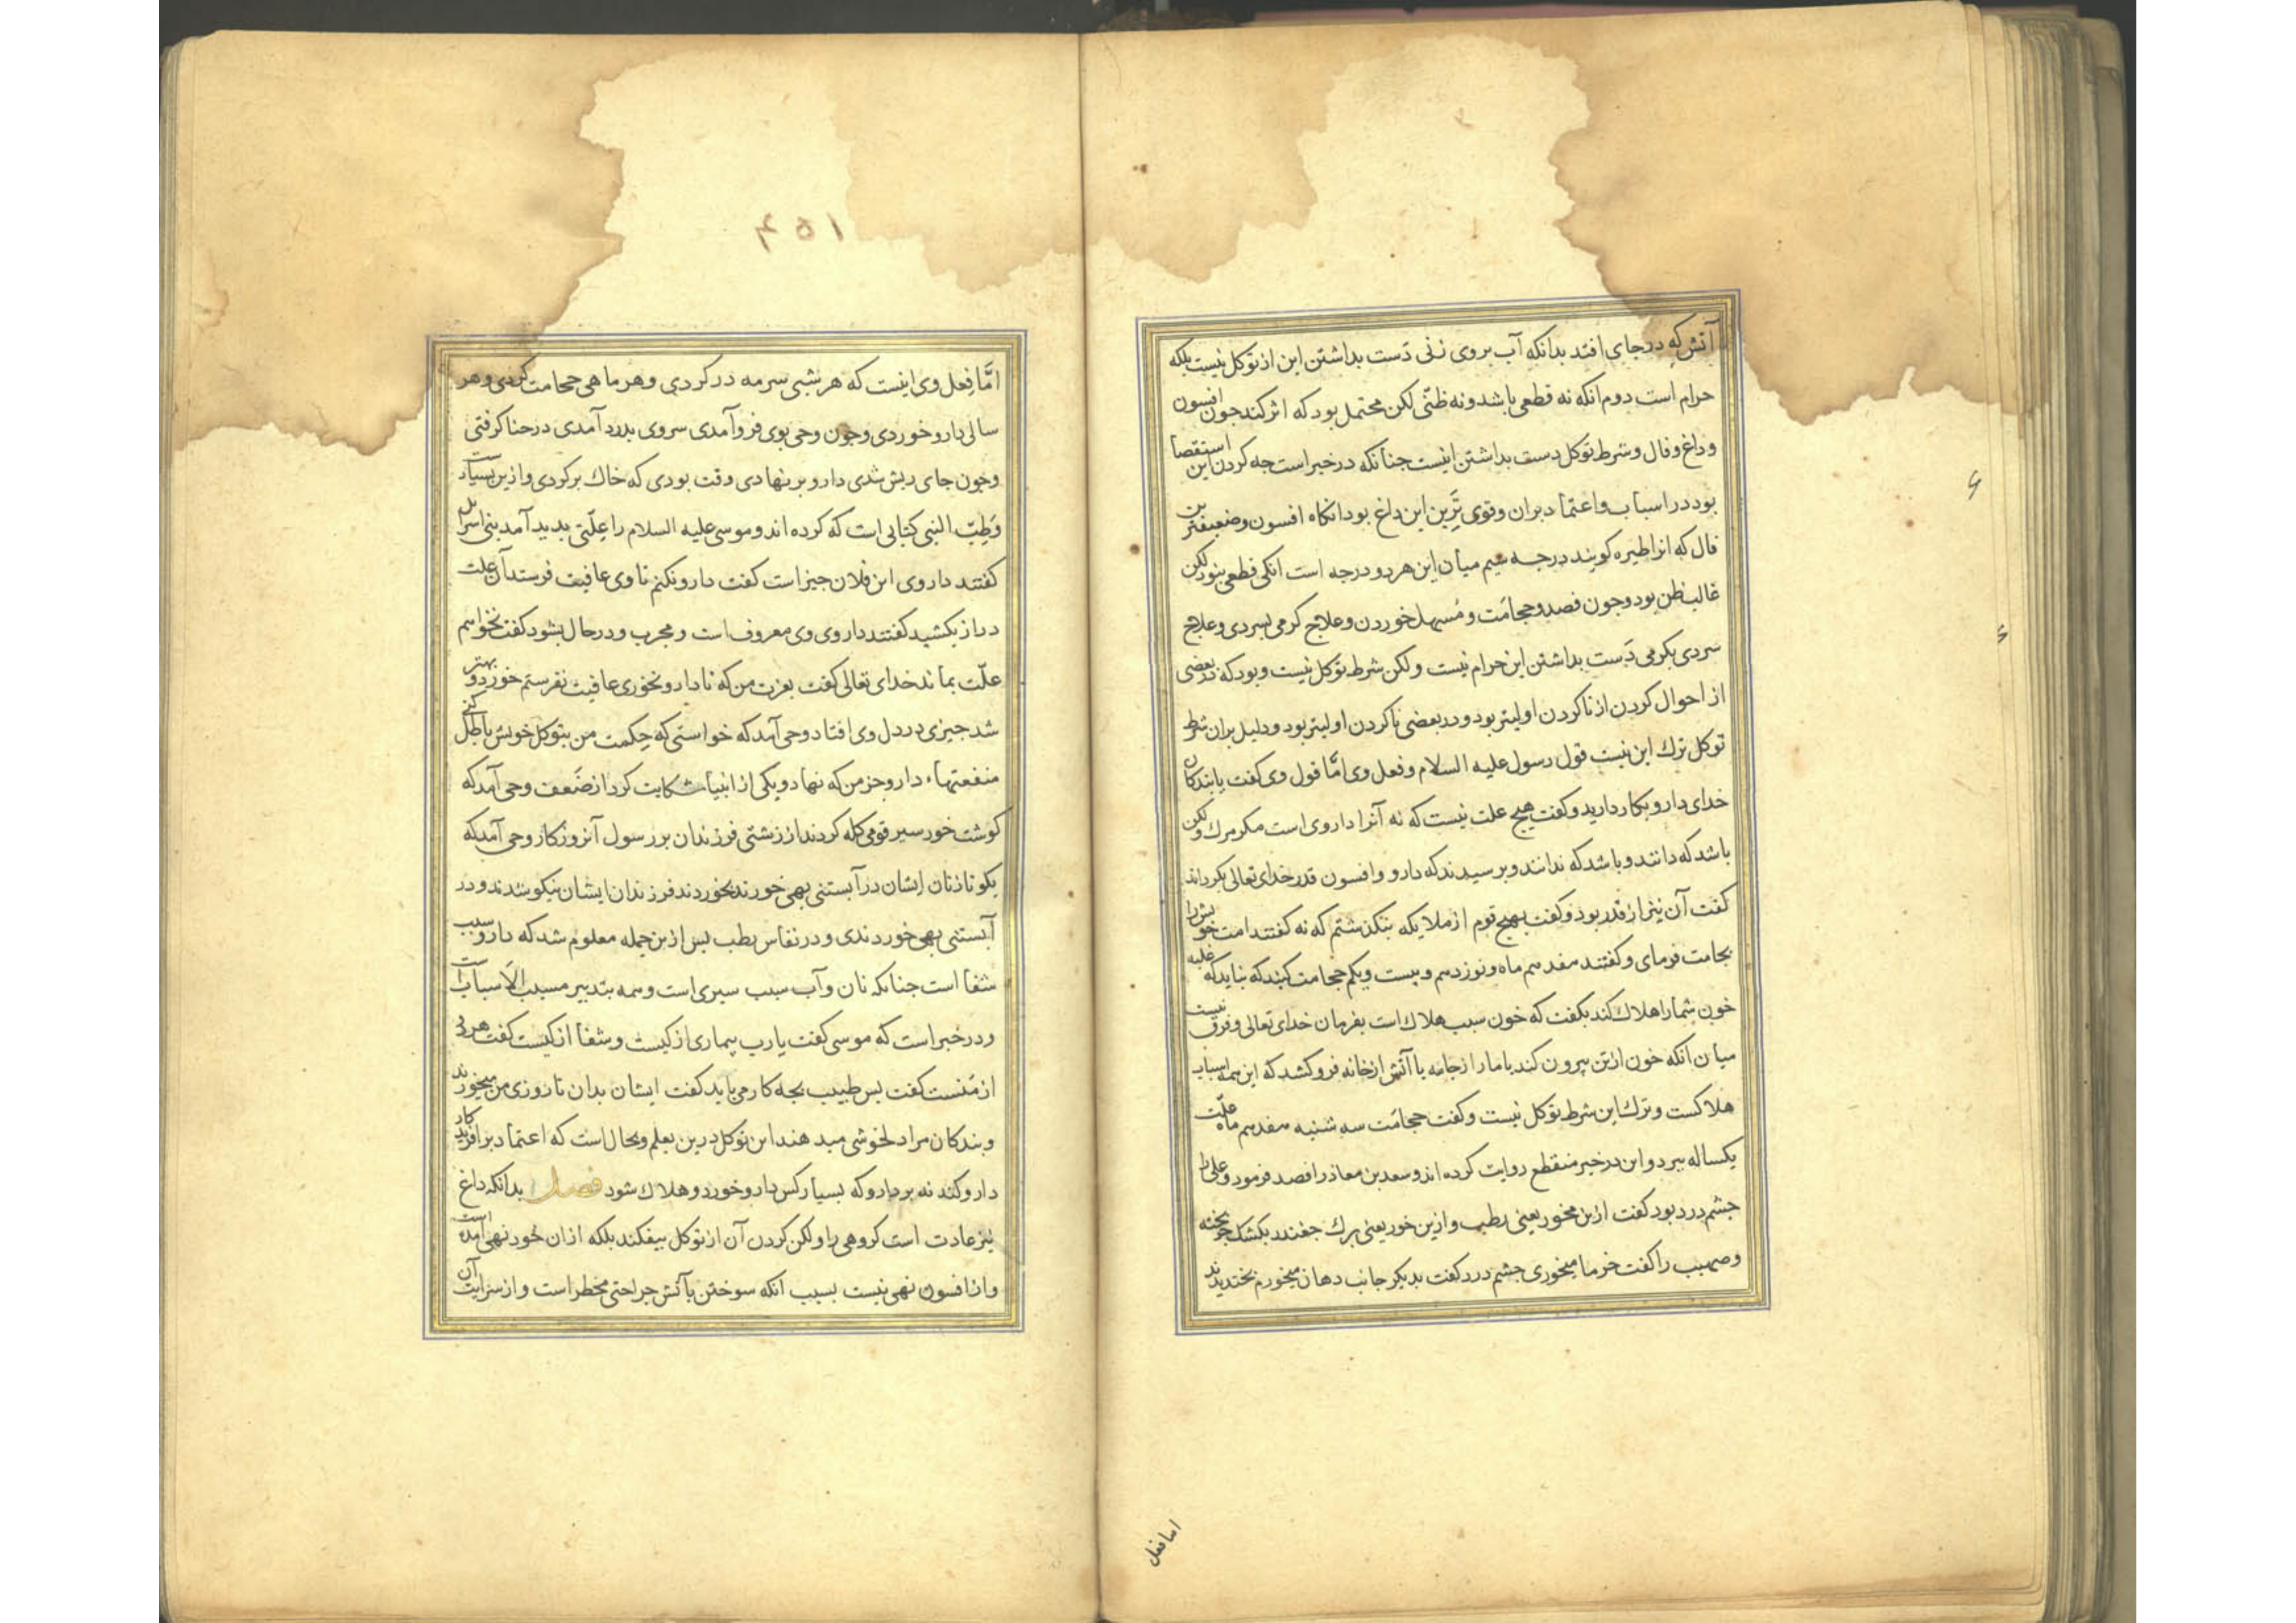 آتش که در جای افتد بدانکه آب بر وی زنی دست بداشتن این از توکل نیست بلکه
حرام است دوم انکه نه قطعی باشد و نه ظنّی لکن محتمل بود که اثر کند جون افسون
وداغ وفال وشرط توکل دست بداشتن اینست جنانکه در خبر است جه کردن این استقصا
بود در اسباب واعتماد بران وقوی تَرین این داغ بود انکاه افسون وضعیفترین
فال که انرا طیره کویند درجه سیم میان این هر دو درجه است انکی قطعی نبود لکن
غالب ظن بود وجون فصد وحجامَت ومُسهل خوردن وعلاج کرمی بسردی وعلاج
سردی بکرمی دَست بداشتن این حرام نیست ولکن شرط توکل نیست وبود که در بعضی
از احوال کردن از ناکردن اولیتر بود ودر بعضی ناکردن اولیتر بود ودلیل بران شرط
توکل ترك این نیست قول رسول علیه السلام وفعل وی امّا قول وی کفت یا بندکان
خدای دارو بکار دارید وکفت هیچ علت نیست که نه آنرا داروی است مکر مرك ولکن
باشد که دانند وباشد که ندانند وبرسیدند که دارو وافسون قدر خدای تعالی بکرداند
کفت آن نیز از قدر بود وکفت بهیچ قوم از ملایکه بنکذشتم که نه کفتند امت خویش را
بحجامت فرمای وکفتند هفدهم ماه ونوزدهم وبیست ویکم حجامت کنید که نباید که غلبه
خون شما را هلاك کند بکفت که خون سبب هلاك است بفرمان خدای تعالی وفرق نیست
میان آنکه خون از تن بیرون کند یا مار از جامه یا آتش از خانه فرو کشد که این همه اسباب
هلاکست وترك این شرط توکل نیست وکفت حجامَت سه شنبه هفدهم ماه علّت
یکساله ببرد واین در خبر منقطع روایت کرده اند وسعد بن معاذ را فصد فرمود وعلی را
جشم درد بود کفت ازین مخور یعنی رطب وازین خور یعنی برك جغندر بکشك جو بخته
وصهیب را کفت خرما میخوری جشم درد کفت بدیکر جانب دهان میخورم بخندیدند
اما فعل
۴۵۱
امّا فِعل وی اینست که هر شبی سرمه در کردی وهر ماهی حجامت کردی وهر
سالی دارو خوردی وجون وحی بوی فرو آمدی سر وی بدرد آمدی در حنا کرفتی
وجون جای ریش شدی دارو بر نهادی وقت بودی که خاك بر کردی وازین بسیار است
وَطِبّ النبی کتابی است که کرده اند وموسی علیه السلام را عِلّتی بدید آمد بنی اسرایل
کفتند داروی این فلان جیز است کفت دارو نکنم تا وی عافیت فرستد آن علت
دراز بکشید کفتند داروی وی معروف است ومجرب ودر حال بشود کفت نخواهم
علّت بماند خدای تعالی کفت بعزت من که تا دارو نخوری عافیت نفرستم خورد وبهتر
شد جیزی در دل وی افتاد وحی آمد که خواستی که حِکمت من بتوکل خویش باطل کنی
منفعتهاء دارو جز من که نهاد ویکی از انبیا شکایت کرد از ضَعف وحی آمد که
کوشت خور سیر قومی کله کردند از زشتی فرزندان بر رسول آنروزکار وحی آمد که
بکو تا زنان ایشان در آبستنی بهی خورند بخوردند فرزندان ایشان نیکو شدند ودر
آبستنی بهی خوردندی ودر نفاس رطب بس ازین جمله معلوم شد که دارو سبب
شفا است جنانکه نان وآب سبب سیری است وهمه بتدبیر مسبب الاَسباب است
ودر خبر است که موسی کفت یا رب بیماری از کیست وشفا از کیست کفت هر دو
از مَنست کفت بس طبیب بجه کار می باید کفت ایشان بدان تا روزی من میخورند
وبندکان مرا دلخوشی میدهند این توکل درین بعلم وبحال است که اعتماد بر افریدکار
دارو کند نه بر دارو که بسیار کس دارو خورد وهلاك شود فصل بدانکه داغ
نیز عادت است کروهی را ولکن کردن آن از توکل بیفکند بلکه ازان خود نهی آمده است
واز افسون نهی نیست بسبب آنکه سوختن بآتش جراحتی مخطر است واز سرایت آن